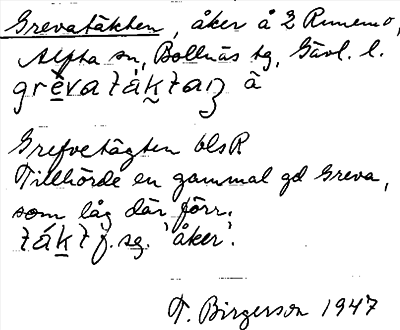 Grevatäkten, åker å 2 Runemo,
Alfta sn, Bollnäs tg, Gävl. l.
grèva táktaṉ å̄
Grefvetägten blsR
Tillhörde en gammal gd Greva,
som låg där förr.
tákt f. sg. 'åker'.
T. Birgerson 1947